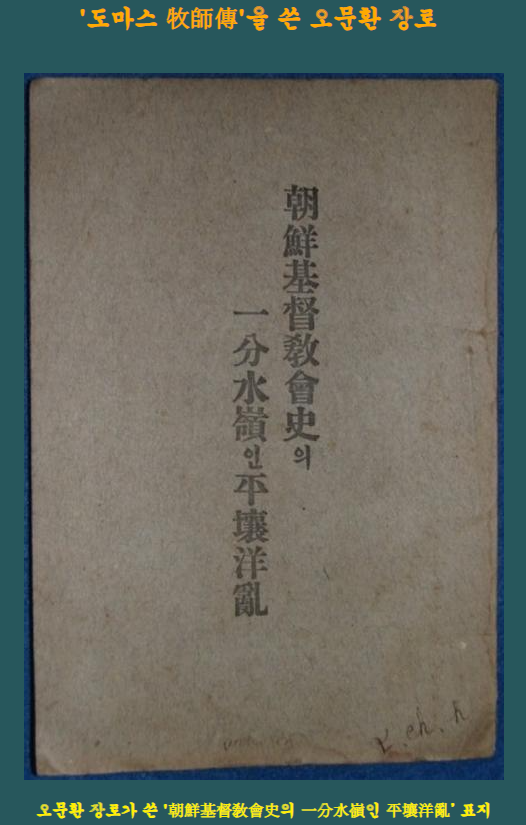 '도마스 牧師傳'을 쓴 오문환 장로
朝鮮基督敎會史의
一分水嶺인平壤洋亂
오문환 장로가 쓴 '朝鮮基督敎會史의 一分水嶺인 平壤洋亂' 표지